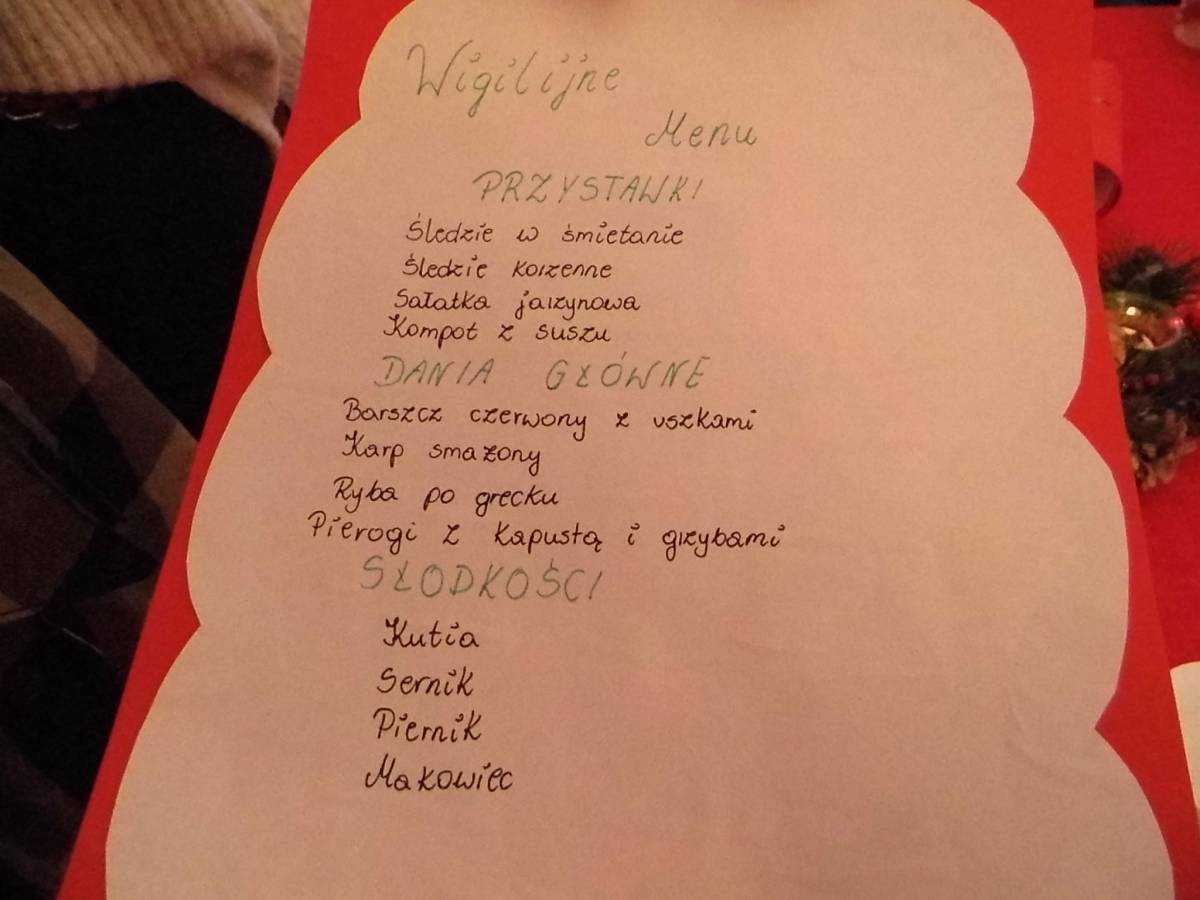 Wigilijne
Menu
PRZYSTAWKI
Śledzie w śmietanie
Śledzie korzenne
Sałatka jarzynowa
Kompot z suszu
DANIA GŁÓWNE
Barszcz czerwony z uszkami
Karp smażony
Ryba po grecku
Pierogi z kapustą i grzybami
SŁODKOŚCI
Kutia
Sernik
Piernik
Makowiec